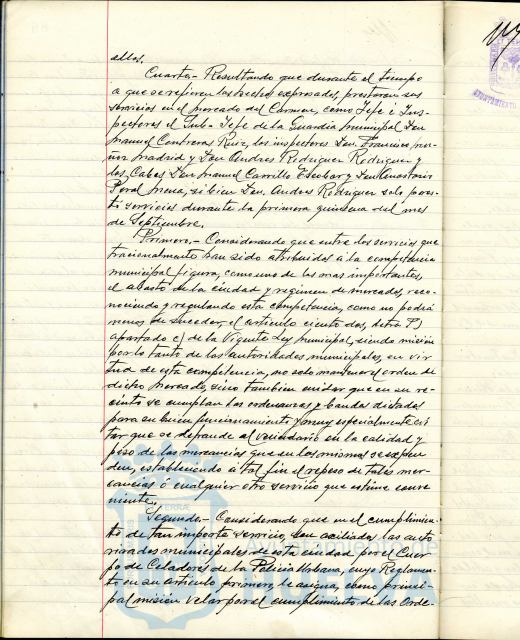 ellos.
Cuarto.- Resultando que durante el tiempo
a que se refieren los hechos expresados, prestaron sus
servicios en el mercado del Carmen, como Jefe é Ins-
pectores el Sub-Jefe de la Guardia Municipal Don
Manuel Contreras Ruiz, los inspectores Don Francisco
Madrid y Don Andres Rodriguez Rodriguez y
los Cabos Don Manuel Carrillo Escobar y Don Anastasio
Peral Mena, si bien Don Andres Rodriguez solo pres-
tó servicios durante la primera quincena del mes
de Septiembre.
Primero.- Considerando que entre los servicios que
tracionalmente han sido atribuidos á la competencia
municipal figura, como uno de los mas importantes,
el abasto de la ciudad y regimen de mercados, reco-
nociendo y regulando esta competencia, como no podrá
menos de suceder, el articulo ciento dos, letra
apartado c) de la Vigente Ley Municipal, siendo misión
por lo tanto de las autoridades municipales, en vir
tud de esta competencia, no solo mantener el orden de
dicho mercado, sino tambien cuidar que en su re-
cinto se cumplan las ordenanzas y bandos dictados
para su buen funcionamiento y muy especialmente evi
tar que se defraude al vecindario en la calidad y
peso de las mercancias que en los mismos se expen
den, estableciendo á tal fin el repeso de tales mer-
cancias ó cualquier otro servicio que estime conve
niente.
Segundo.- Considerando que en el cumplimien-
to de tan importe servicio, son auxiliadas las auto
ridades municipales de esta ciudad por el Cuer-
po de Celadores de la Policia Urbana, cuyo Reglamen-
to en su articulo primero, le asigna, como princi-
pal misión velar por el cumplimiento de las Orde-
AYUNTAMIENTO
Ayuntamiento de
HUELVA